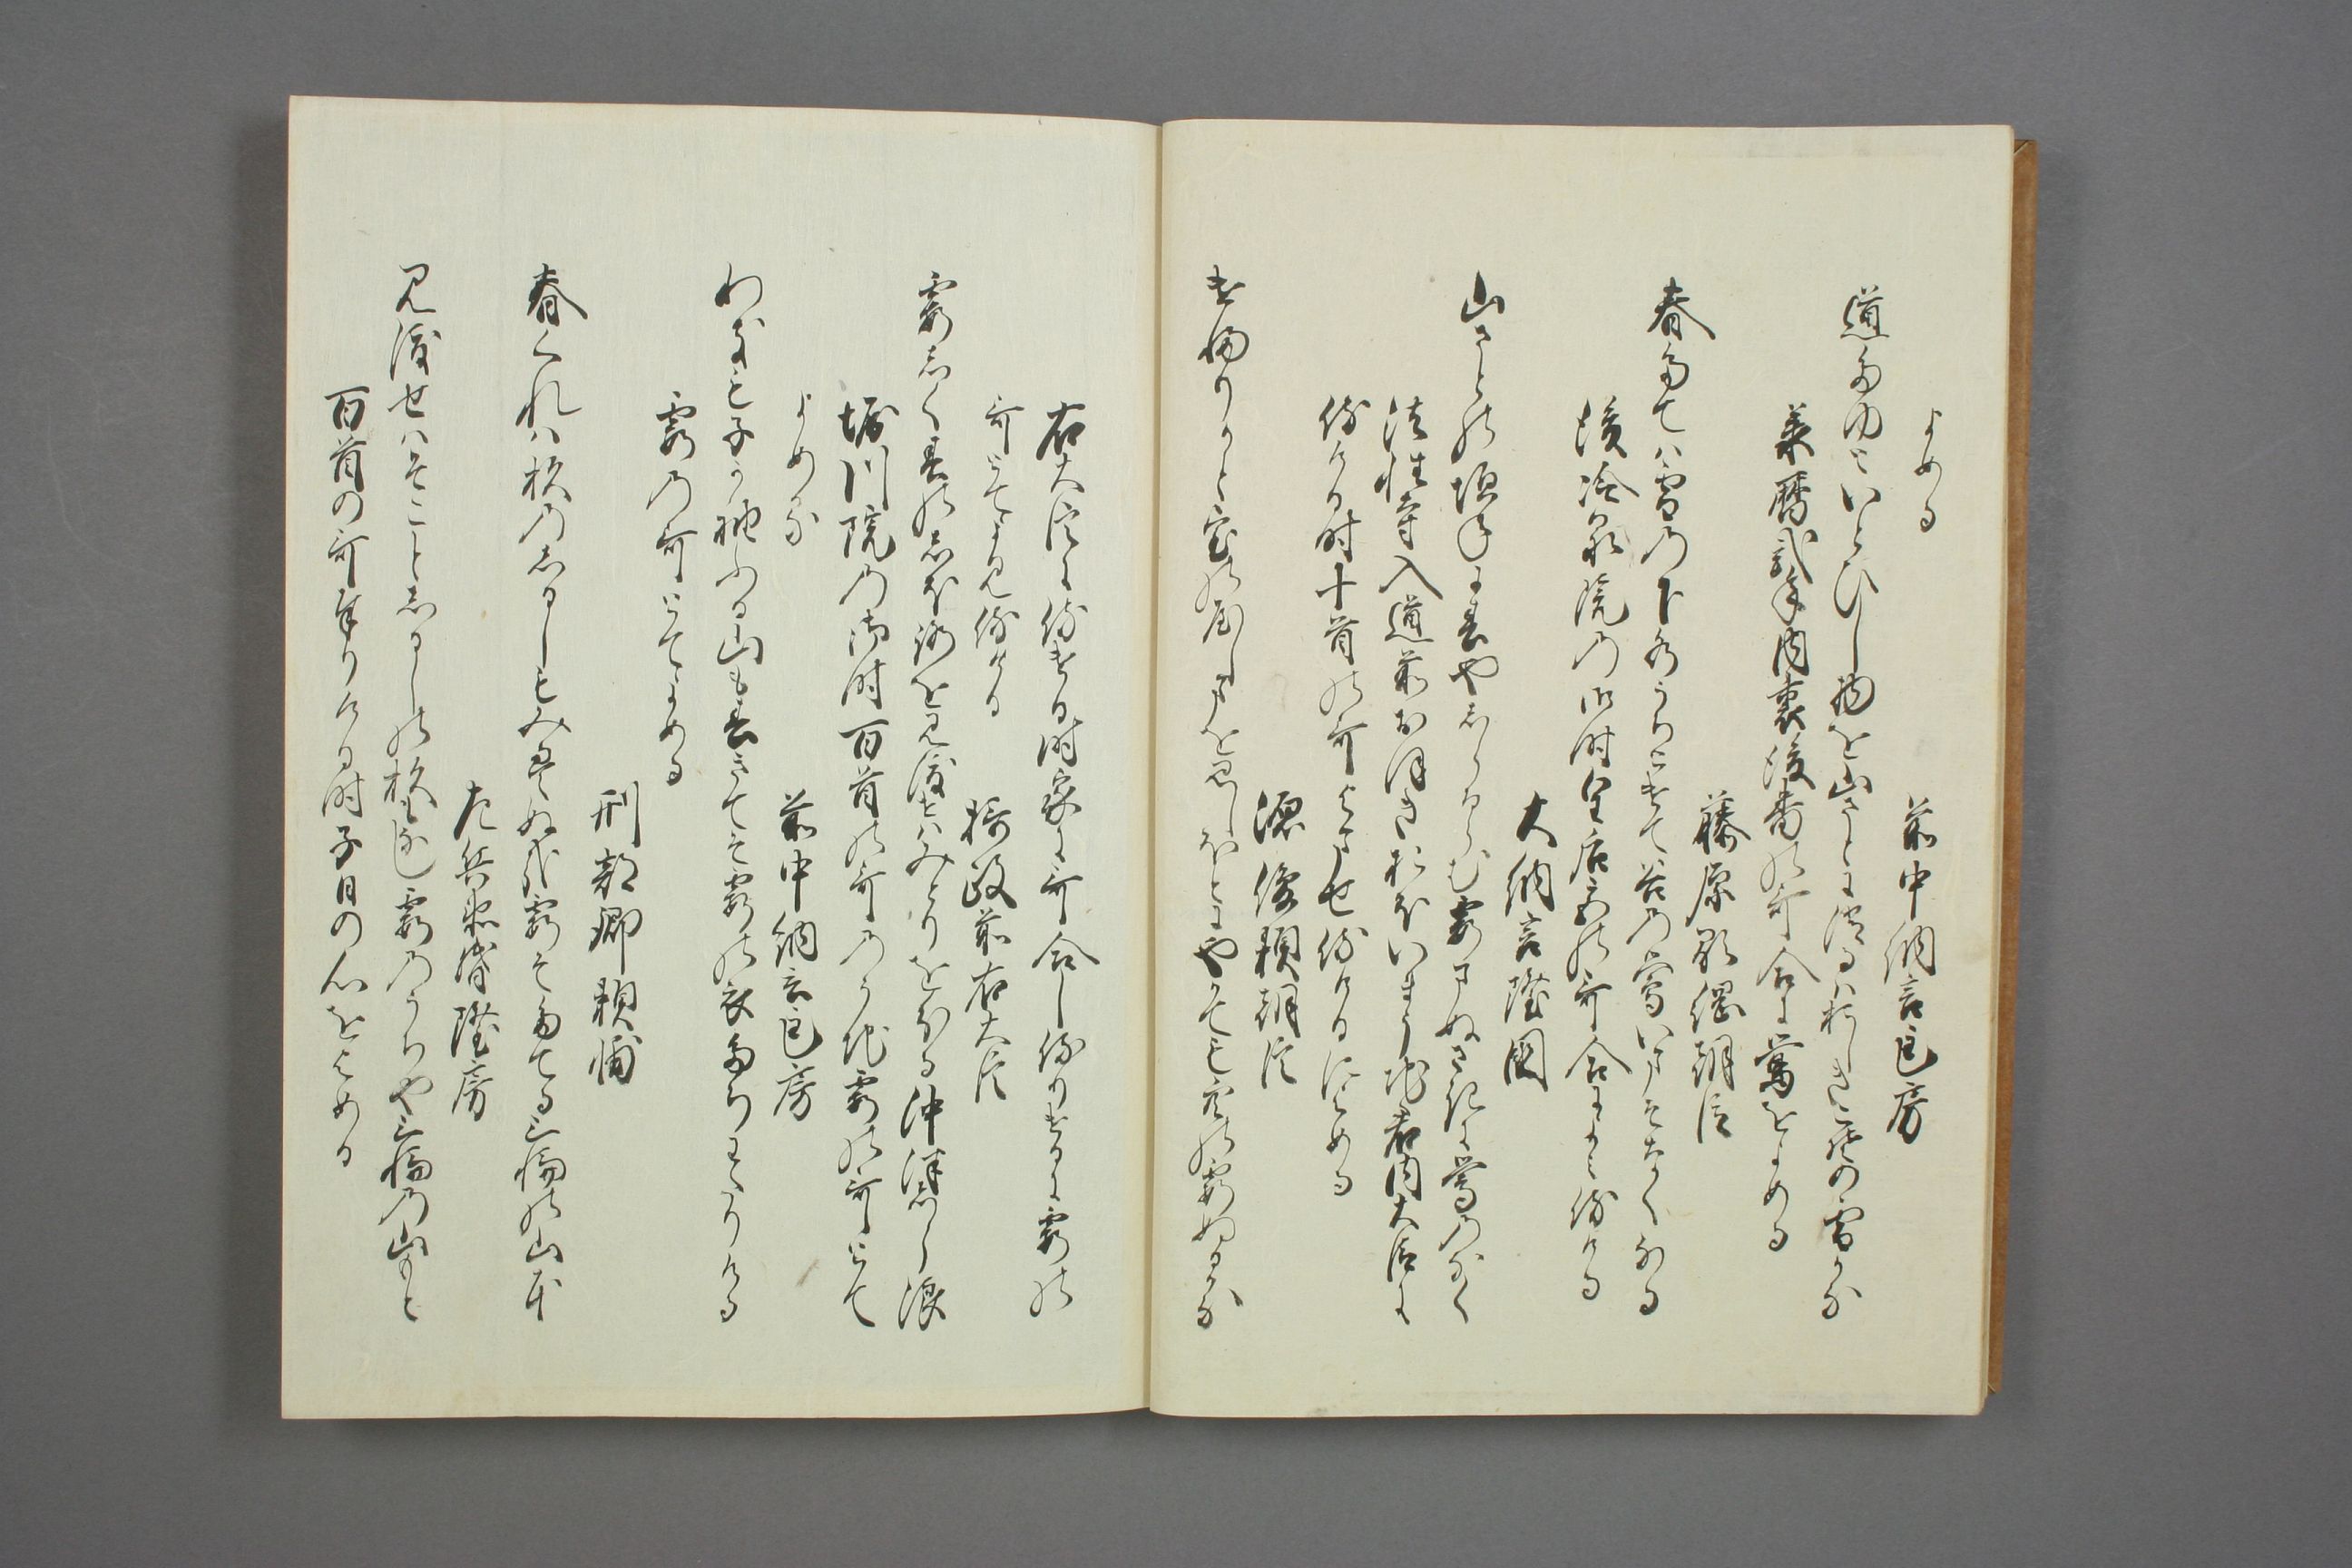 よめる
前中納言匡房
道たゆといとひし物を山さとに消るはおしきこその雪かな
承暦弐年内裏後番の哥合に鶯をよめる
藤原顕綱朝臣
春たては雪の下水うちとけて谷の鶯いまそなくなる
後冷泉院の御時皇后宮の哥合によみ侍ける
大納言隆国
山さとの垣ねに春やしるからむ霞まぬさきに鶯のなく
法性寺入道前おほきおほいまうち君内大臣に
侍ける時十首の哥よませ侍けるによめる
源俊頼朝臣
け婦りかと室の八嶋をみしほとにやかても空の霞ぬるかな
右大臣に侍ける時家に哥合し侍りけるに霞の
哥とてよみ侍ける
摂政前右大臣
霞しく春のしほ路を見渡せはみとりをわくる沖津しら浪
堀川院の御時百首の哥のうち霞の哥とて
よめる
前中納言匡房
わきも子か袖ふる山も春きてそ霞の衣たちわたりける
霞の哥とてよめる
刑部卿頼輔
春くれは杉のしるしもみえぬ哉霞そたてる三輪の山本
左兵衛督隆房
見渡せはそことしるしの杉もなし霞のうちや三輪の山もと
百首の哥奉りける時子日の心をよめる